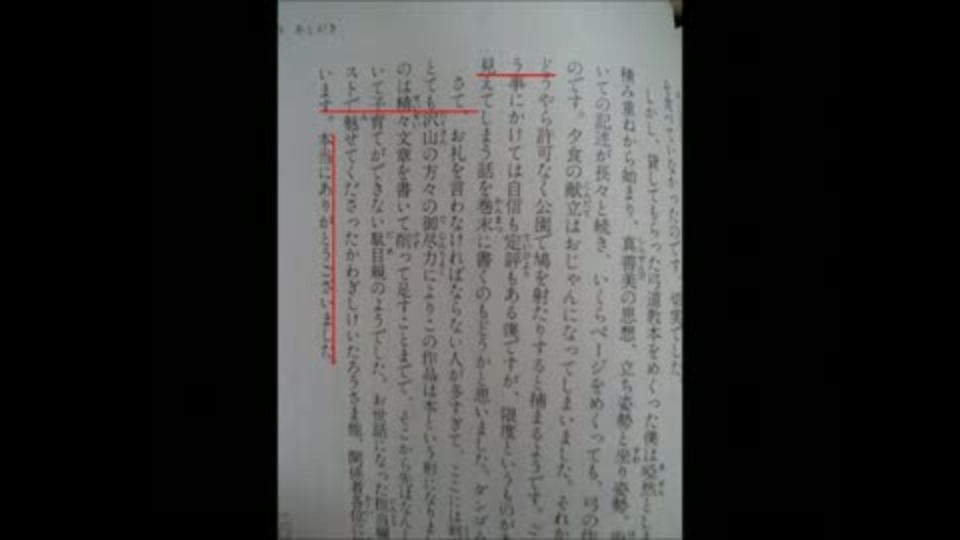 あとがき
を食べていなかったのです。切実でした。
しかし、貸してもらった弓道教本をめくった僕は唖然とし
積み重ねから始まり、真善美の思想、立ち姿勢と坐り姿勢。
いての記述が長々と続き、いくらページをめくっても、弓の
のです。夕食の献立はおじゃんになってしまいました。それ
どうやら許可なく公園で鳩を射たりすると捕まるようです。
う事にかけては自信も定評もある僕ですが、限度というものが
見えてしまう話を巻末に書くのもどうかと思いました。
さて、お礼を言わなければならない人が多すぎて、ここには
とても沢山の方々の御尽力によりこの作品は本という形になりま
のは精々文章を書いて削って足すことまでで、そこから先はなん
いて子育てができない駄目親のようでした。お世話になった担当編
ストで魅せてくださったかわぎしけいたろうさま他、関係者各位に
います。本当にありがとうございました